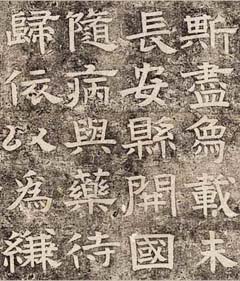 斯盡載未
長安縣開國
隨病與藥待
歸依以為縑